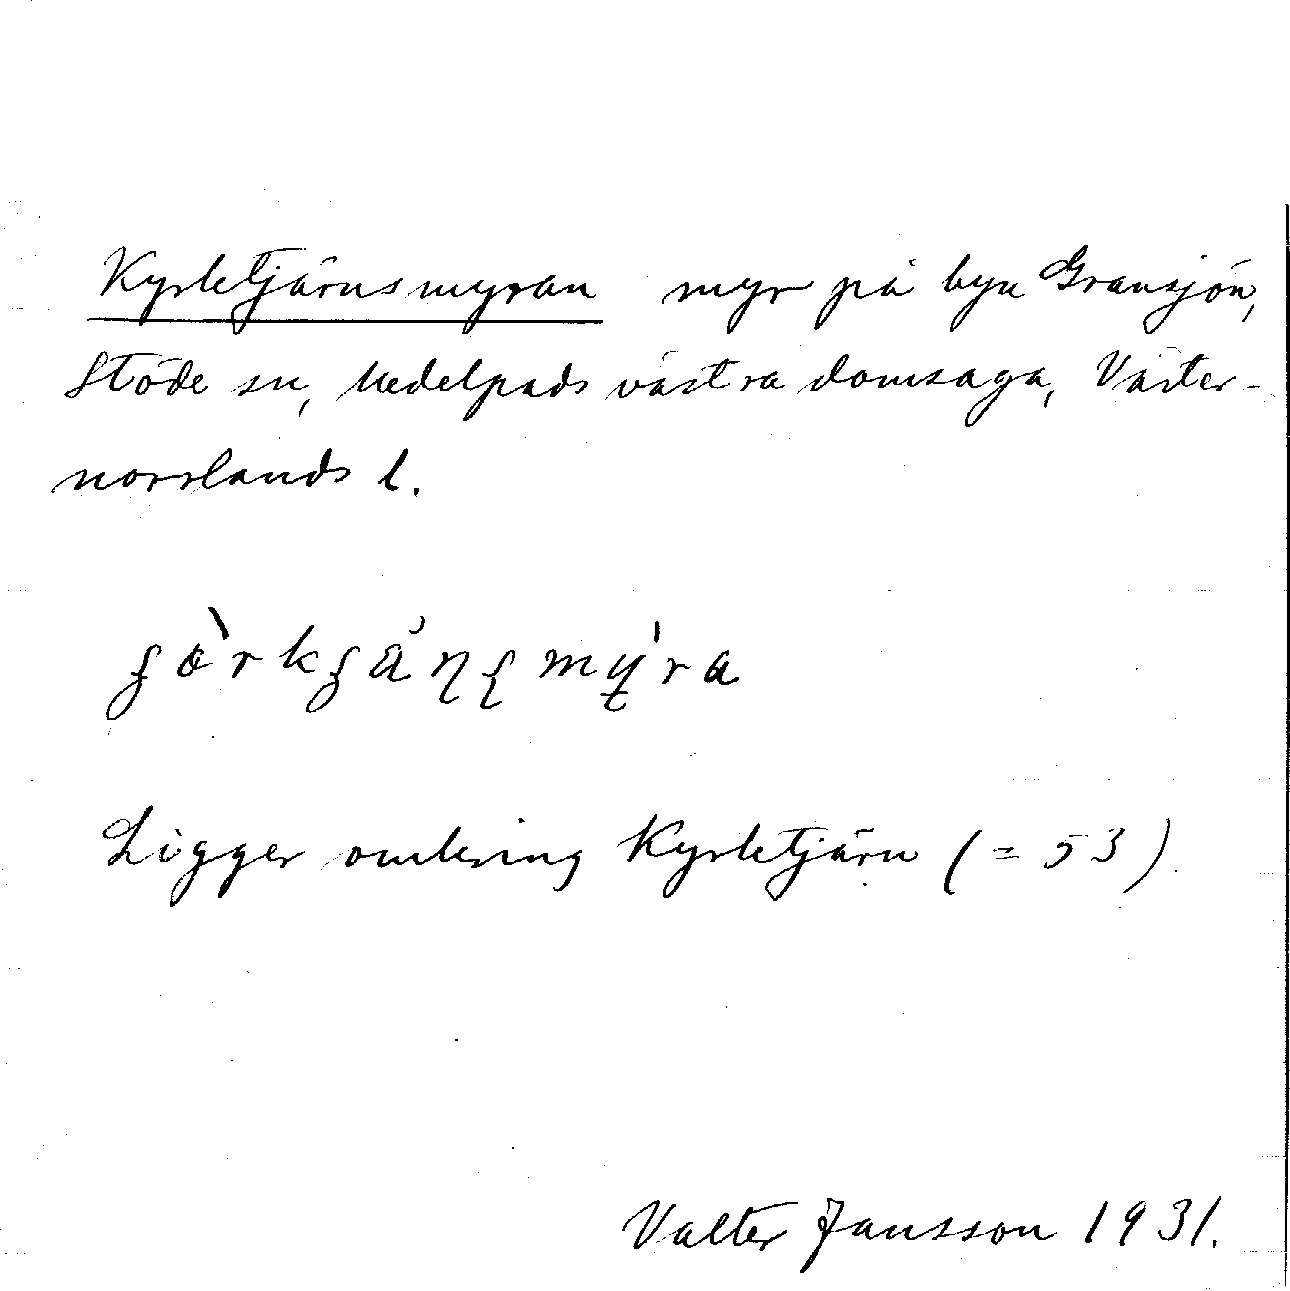 Kyrktjärnsmyran myr på byn Gransjön,
Stöde sn, Medelpads västra domsaga, Väster-
norrlands l.
Ligger omkring Kyrktjärn (= 53)
Valter Jansson 1931.